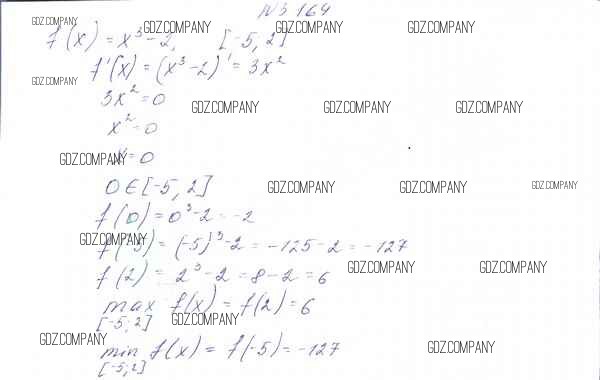 N 3 164
GDZ.COMPANY GDZ.COMPANY GDZ.COMPANY GDZ.COMPANY
f(x) = x³ - 2, [-5; 2]
f'(x) = (x³ - 2)' = 3x²
GDZ.COMPANY
3x² = 0
GDZ.COMPANY GDZ.COMPANY GDZ.COMPANY
x² = 0
x = 0
GDZ.COMPANY
0 ∈ [-5; 2]
GDZ.COMPANY GDZ.COMPANY GDZ.COMPANY
f(0) = 0³ - 2 = -2
GDZ.COMPANY
f(-5) = (-5)³ - 2 = -125 - 2 = -127
GDZ.COMPANY GDZ.COMPANY
f(2) = 2³ - 2 = 8 - 2 = 6
max f(x) = f(2) = 6
[-5; 2]
GDZ.COMPANY
GDZ.COMPANY GDZ.COMPANY
min f(x) = f(-5) = -127
[-5; 2]